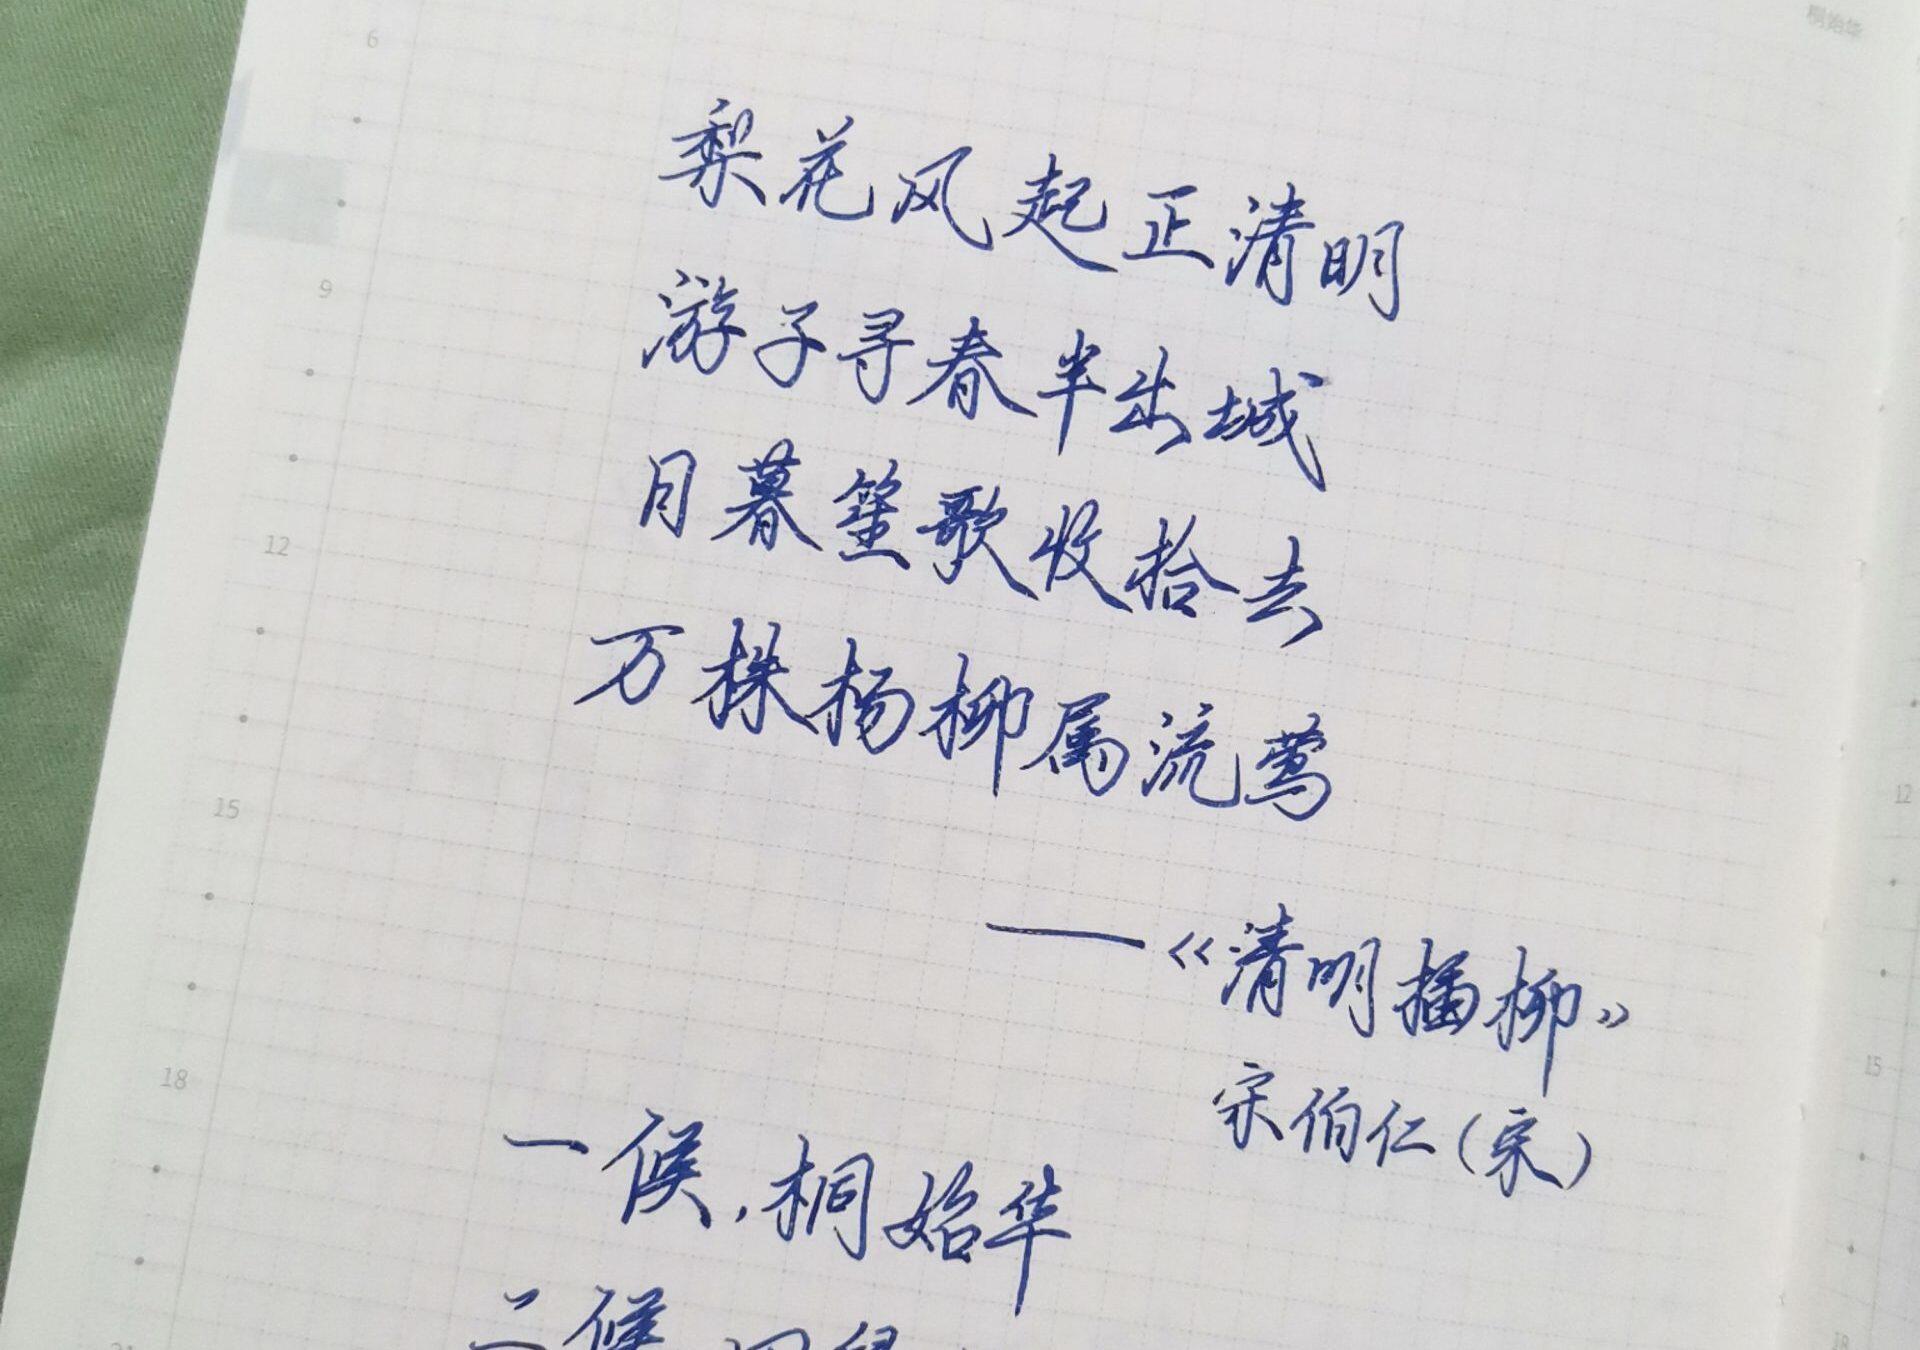 桐始华
6
梨花风起正清明
游子寻春半出城
9
日暮笙歌收拾去
12
万株杨柳属流莺
15
——《清明插柳》
宋伯仁(宋)
18
一候,桐始华
二候
12
15
18